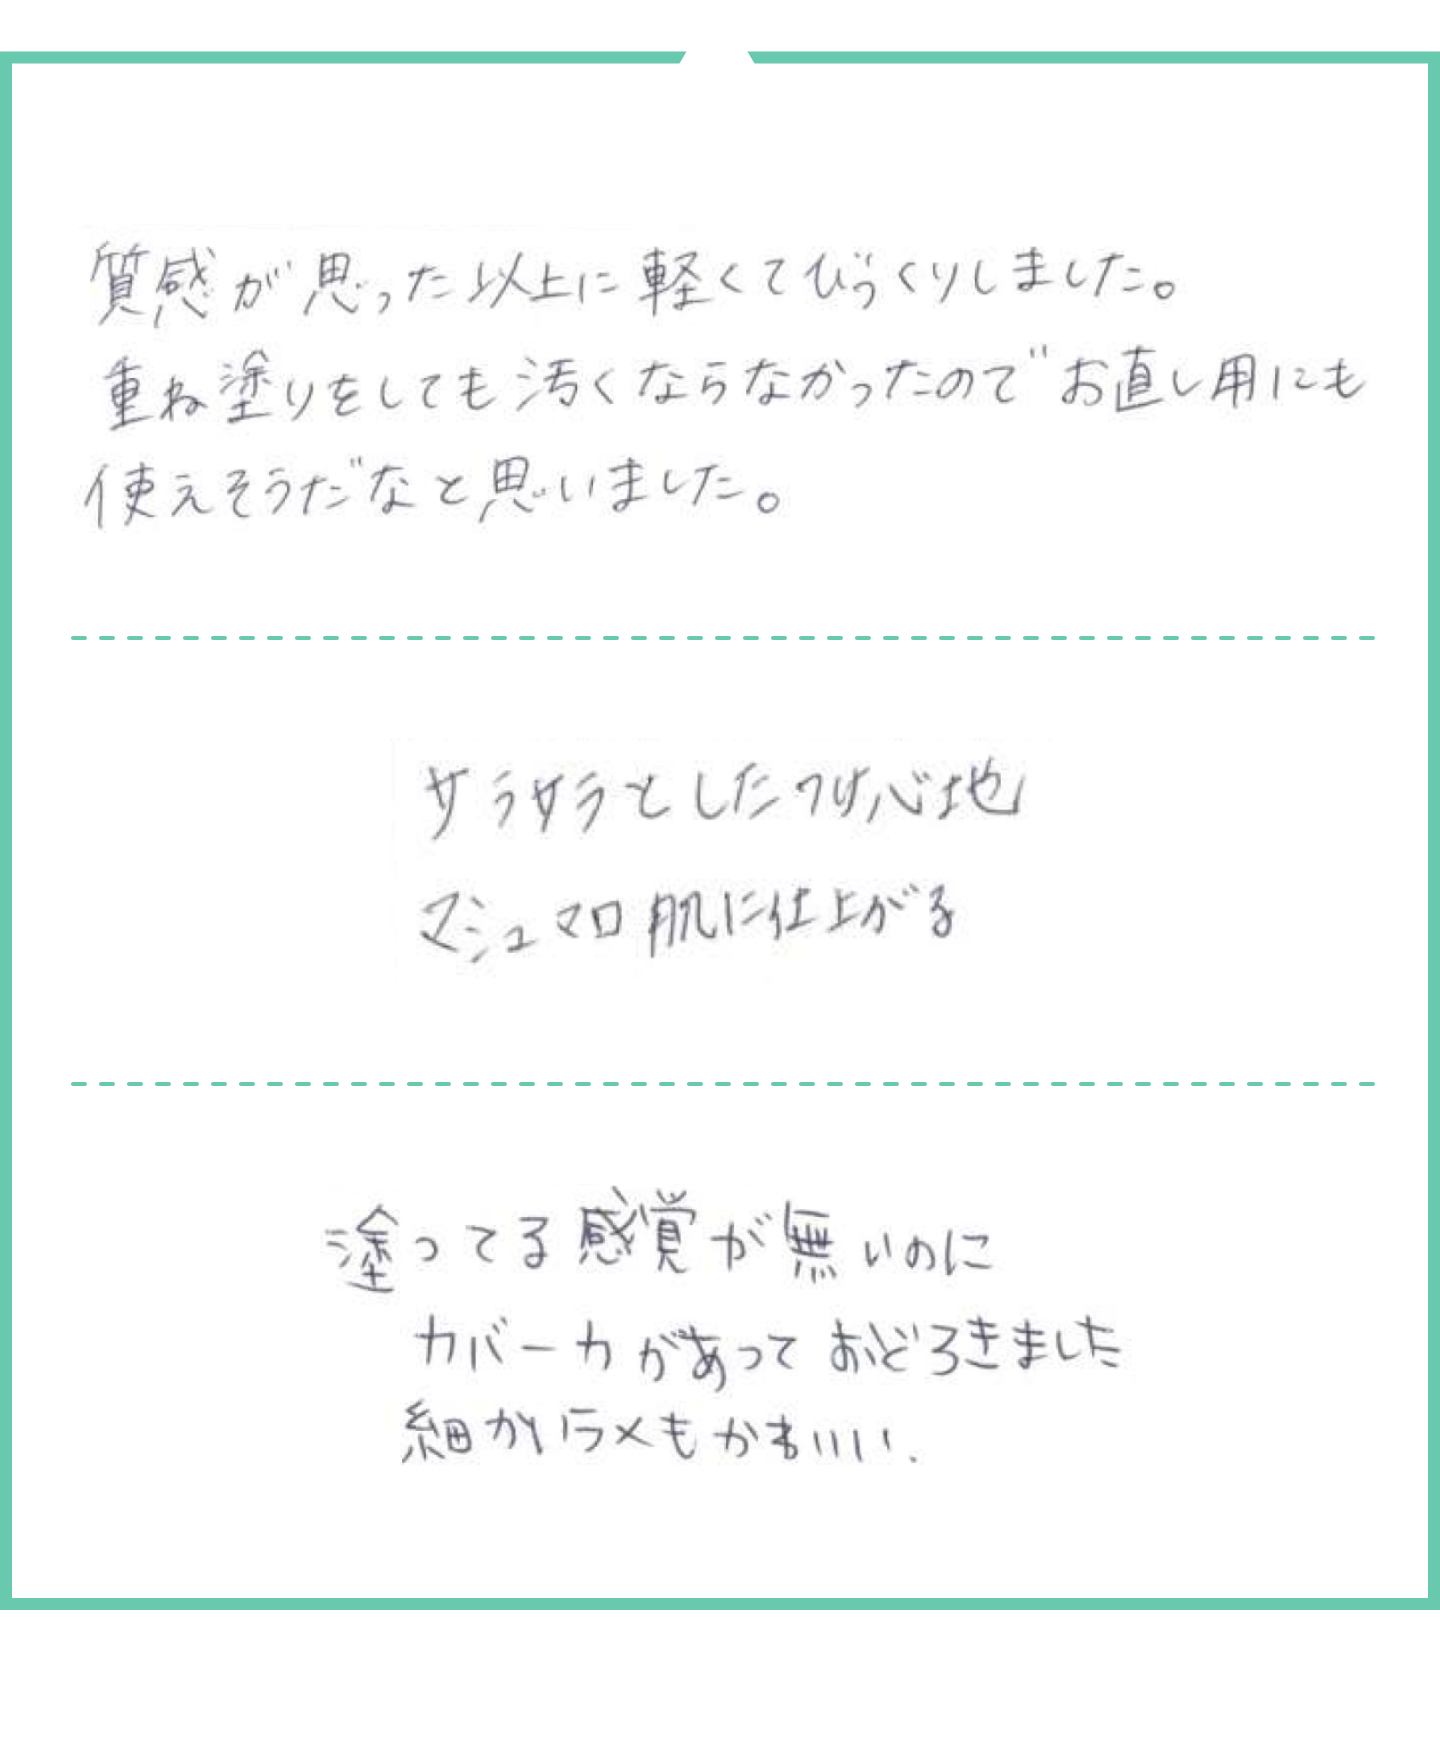 質感が思った以上に軽くてびっくりしました。
重ね塗りをしても汚くならなかったのでお直し用にも
使えそうだなと思いました。
サラサラとしたつけ心地
マシュマロ肌に仕上がる
塗ってる感覚が無いのに
カバー力があっておどろきました
細かいラメもかわいい.